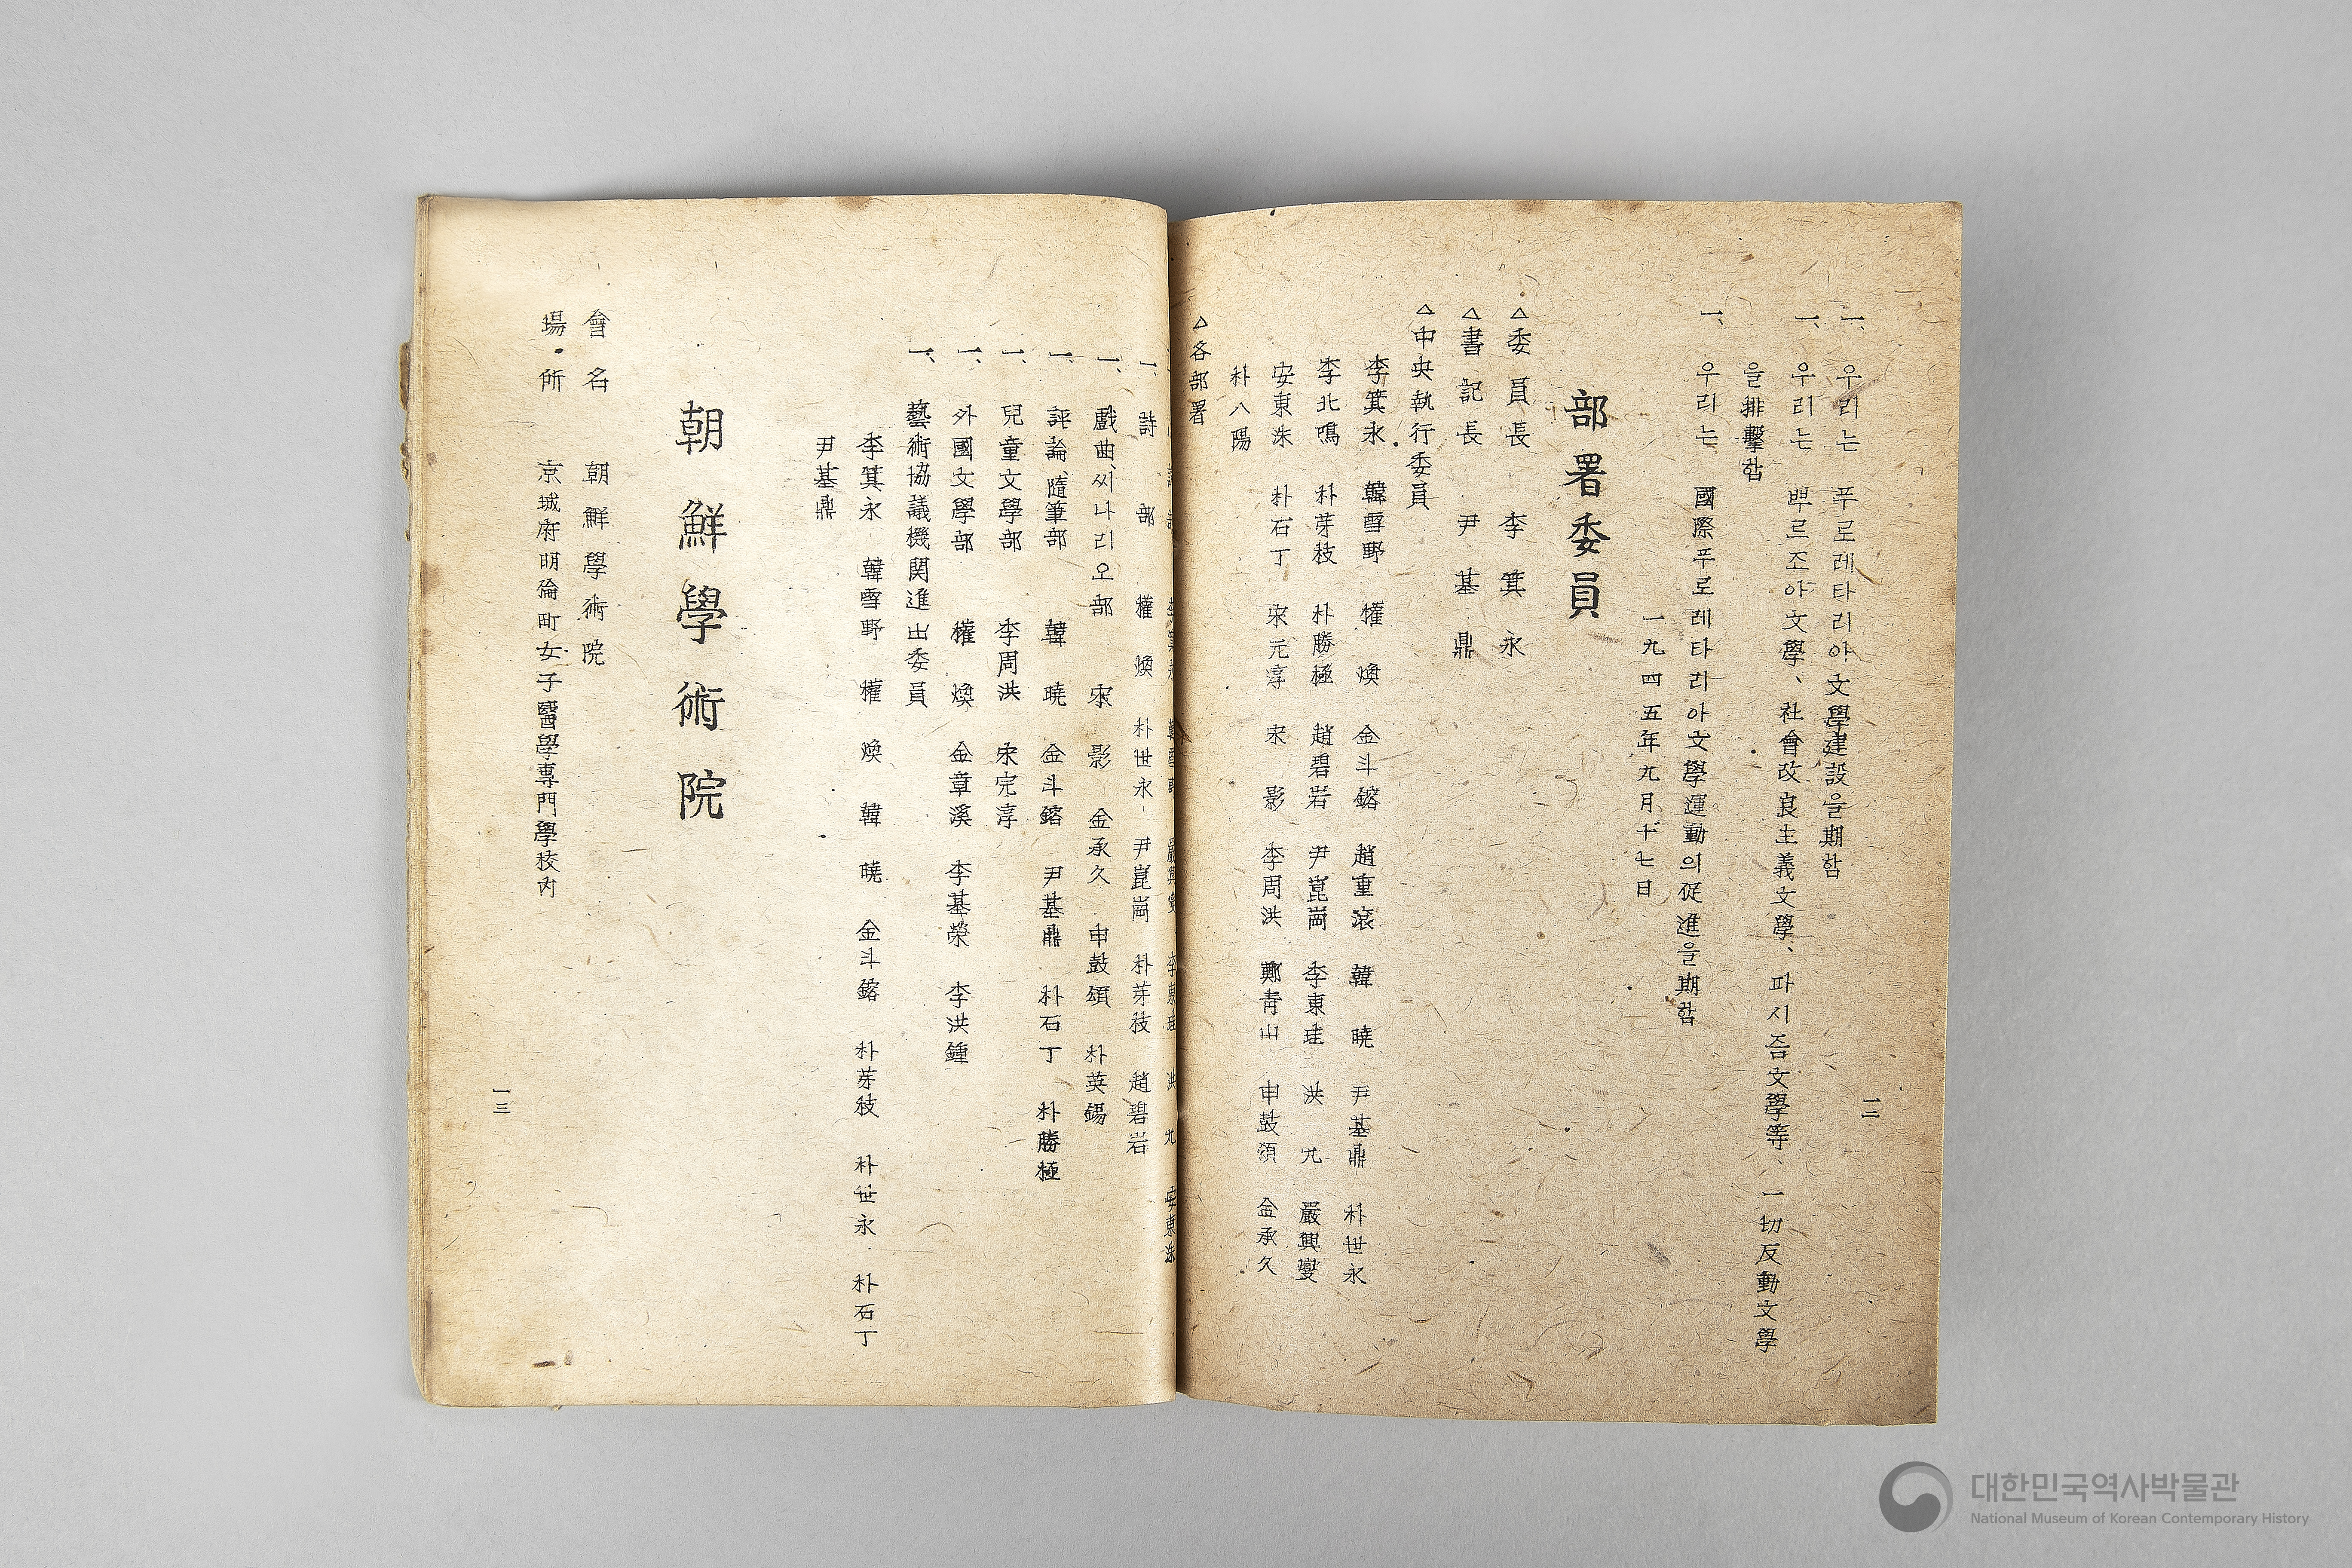 一、우리는 푸로레타리아文學建設을期함
一、우리는 뿌르조아文學、社會改良主義文學、파시즘文學等、一切反動文學
을排擊함
一、우리는 國際푸로레타리아文學運動의促進을期함
一九四五年九月十七日
部署委員
△委員長 李箕永
△書記長 尹基鼎
△中央執行委員
李箕永 韓雪野 權煥 金斗鎔 趙重滾 韓曉 尹基鼎 朴世永
李北鳴 朴芽枝 朴勝極 趙碧岩 尹崑崗 李東珪 洪九 嚴興燮
安東洙 朴石丁 宋完淳 宋影 李周洪 鄭青山 申鼓頌 金承久
朴八陽
△各部署
一二
一、詩部 權煥 朴世永 尹崑崗 朴芽枝 趙碧岩
一、戲曲、씨나리오部 宋影 金承久 申鼓頌 朴英鍚
一、評論、隨筆部 韓曉 金斗鎔 尹基鼎 朴石丁 朴勝極
一、兒童文學部 李周洪 宋完淳
一、外國文學部 權煥 金章溪 李基榮 李洪鍾
一、藝術協議機関進出委員
李箕永 韓雪野 權煥 韓曉 金斗鎔 朴芽枝 朴世永 朴石丁
尹基鼎
朝鮮學術院
會名 朝鮮學術院
場所 京城府明倫町女子醫學専門學校內
一三
대한민국역사박물관
National Museum of Korean Contemporary History